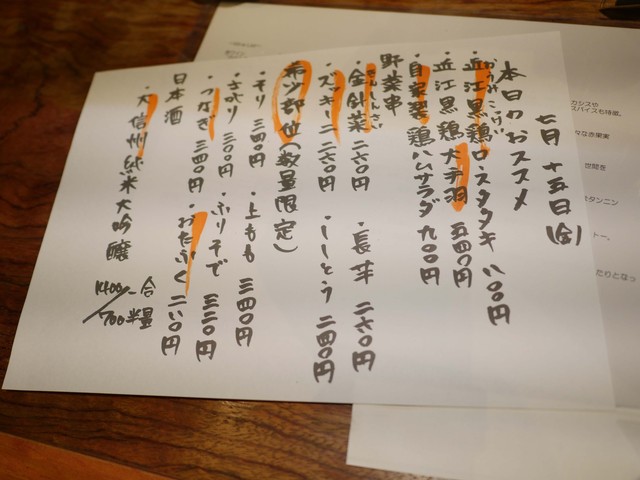 七月十五日(金)
本日のおススメ
・近江黒鶏ロースタタキ 八〇〇円
おうみこっけい
・近江黒鶏大手羽 五四〇円
・自家製鶏ハムサラダ 九〇〇円
野菜串
・金針菜 二六〇円 ・長芋 二六〇円
きんしんさい
・ズッキーニ 二六〇円 ・ししとう 二四〇円
希少部位(数量限定)
・そり 三四〇円 ・上もも 三四〇円
・さがり 三〇〇円 ・ふりそで 三二〇円
・つなぎ 三四〇円 ・おたふく 二八〇円
日本酒
・大信州 純米大吟醸 1400/一合 700半量
カシスや
スパイスも特徴。
々なき果実
世間を
タンニン
トー。
たりとなっ